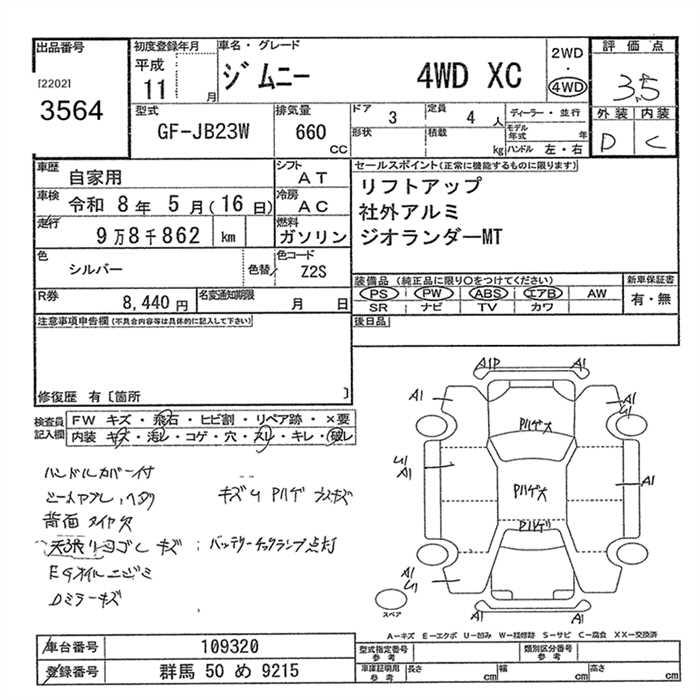 出品番号 初度登録年月 車名・グレード 2WD・4WD 評価点
[2202] 3564 平成 11 月 ジムニー 4WD XC 3.5
外装 内装
D C
型式 GF-JB23W 排気量 660 CC ドア 3 定員 4 人 ディーラー・並行
形状 積載 kg モデル年式 年 ハンドル 左・右
車歴 自家用 シフト AT セールスポイント(正常に機能するものに限ります)
車検 令和 8 年 5 月(16 日) 冷房 AC リフトアップ
社外アルミ
走行 9万8千862 km 燃料 ガソリン ジオランダーMT
色 シルバー 色替 色コード Z2S
装備品 (純正品に限り○をつけてください) 新車保証書
PS PW ABS エアB AW 有・無
SR ナビ TV カワ
R券 8,440 円 名変通知期限 月 日
後日品
注意事項申告欄(不具合内容等は具体的に記入して下さい)
修復歴 有〔箇所 〕
検査員記入欄 FW キズ・飛石・ヒビ割・リペア跡・×要
内装 キズ・汚レ・コゲ・穴・スレ・キレ・破レ
ハンドルカバー付
背面タイヤ欠
天張りヨゴレキズ バッテリーチェックランプ点灯
EGオイルニジミ
Dミラーキズ
キズU Pハゲ
A1P A1
A1 A1
U1
Pハゲ大
U1
A1
A1
Pハゲ大
Pハゲ
A1
U1
A1 A1
スペア
A-キズ E-エクボ U-凹み W-板修跡 S-サビ C-腐食 XX-交換済
車台番号 109320
型式指定番号 参考 類別区分番号 参考
登録番号 群馬 50 め 9215
車庫証明用 参考 長さ cm 幅 cm 高さ cm